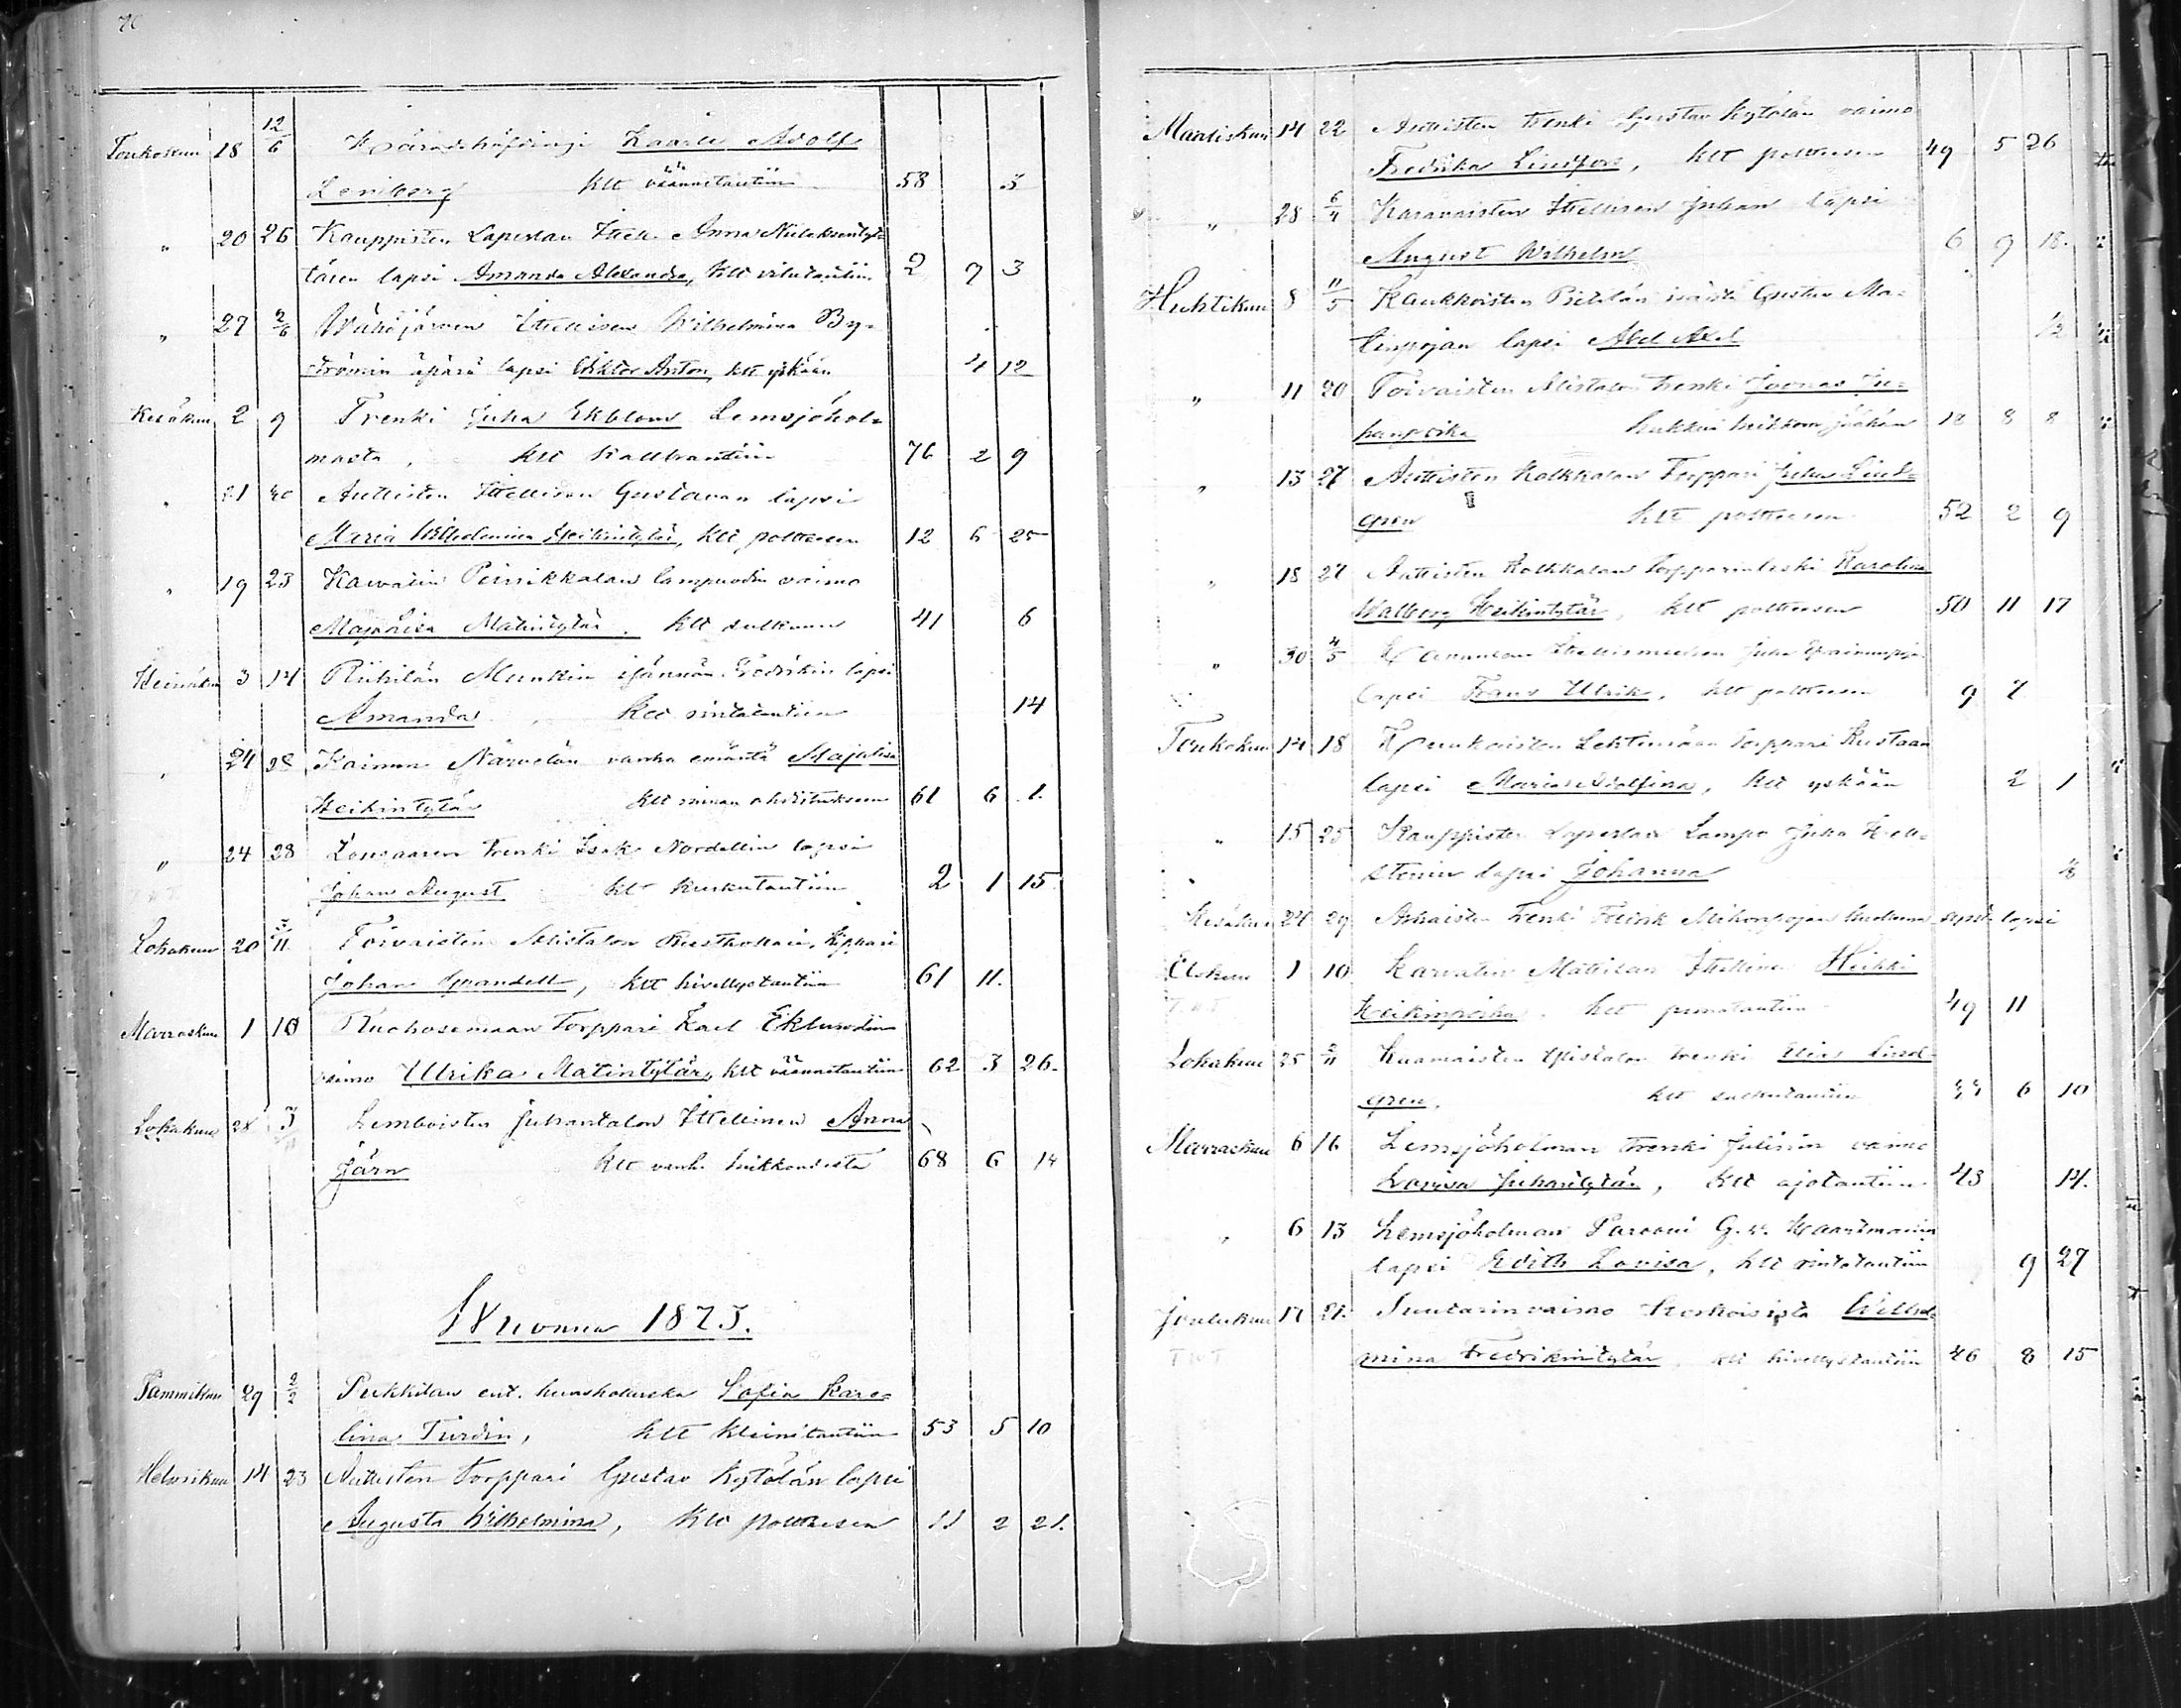 Toukokuu 18 12/6 Kaarle Adolf
Lenberg klt väännetautiin 58 3
" 20 26 Kauppisten Lapistan Ittell. Anna
tären lapsi Amanda Alexandra, klt 2 7 3
" 27 2/6 Wähäjärven Ittellisen Wilhelmina By-
strömin äpärä lapsi Wiktor Anton, klt yskään 4 12
Kesäkuu 2 9 Trenki Juha Ekblom Lemsjöhol-
masta, klt hallitautiin 76 2 9
" 21 Anttisten Ittellisen Gustavan lapsi
Maria Wilhelmina Heikintytär, klt poltteesen 12 6 25
" 19 23 Karvatin Peirikkalan lampuodin vaimo
Majalisa Matintytär. klt 41 6
Heinäkuu 3 14 Riihilän Munkin isännän Fredrikin lapsi
Amanda klt rintatautiin 14
" 24 28 Kaimen vanha emäntä Majalisa
Heikintytär klt rinnan ahdistukseen 61 6 1.
" 24 28 trenki Isak Nordellin lapsi
Johan August klt Kuskutautiin 2 1 15
Lokakuu 20 Toivaisten Alistalon
Johan Grandell, klt hivellystautiin 61 11.
Marraskuu 1 10 Ruohosemaan Torppari Karl Eklundin
vaimo Ulrika Matintytär, klt väännetautiin 62 3 26.
Lokakuu 28 Lemboisten Juhantalon Ittellinen Anna
Järn klt vanh. heikkoudesta 68 6 14
Wuonna 1875.
Tammikuu 29 2/2 Pukkilan ent. huushollerska Sofia Karo-
lina Turdin, klt kleinitautiin 53 5 10
Helmikuu 14 23 Anttisten torppari Gustav Kytölän lapsi
Augusta Wilhelmina, klt poltteesen 11 2 21.
Maaliskuu 14 22 Anttisten trenki Gustav Kytölän vaimo
Fredrika Lindfors, klt poltteesen 49 5 26
" 28 6/4 Karavaisten Ittellisen Juhan lapsi
August Wilhelm 6 9 18.
Huhtikuu 8 11/5 Kaukkoisten Pietilän isäntä Gustav Ma-
tinpojan lapsi Abel Axel 12
" 11 20 Toivaisten Alistalon trenki Joonas Ju-
hanpoika hukkui heikkoon jäähän 18 8 8
" 13 27 Anttisten Kolkkalan Torppari Juha Lind-
gren klt poltteesen 52 2 9
" 18 27 Anttisten Kolkkalan torpparinleski Karolina
Walborg Heikintytär, klt poltteesen 50 11 17
" 30 4/5 Ittellismiehen Juha
lapsi Frans Ulrik, klt poltteesen 9 7
Toukokuu 14 18 Lehtimäen torppari Kustaan
lapsi Maria Adolfina, klt yskään 2 1
" 15 25 Kauppisten Lapistan Lampo Juha Hell-
stenin lapsi Johanna
Kesäkuu 24 29 trenki Fredrik Mikonpojan kuolleena synt. lapsi
Elokuu 1 10 Karvatin Mattilan Ittellinen Heikki
Heikinpoika. klt punatautiin 49 11
Lokakuu 25 2/11 Kuamaisten Ylistalon trenki Elias Lind-
gren, klt 6 10
Marraskuu 6 16 Lemsjöholman trenki Juliinin vaimo
Lovisa Juhantytär, klt ajotautiin 43 14.
" 6 13 Lemsjöholman Parooni G. v. Haartmanin
lapsi Edith Lovisa, klt rintatautiin 9 27
Joulukuu 17 21. Suutarin vaimo Wilhel-
mina Fredrikintytär, klt hivellystautiin 46 8 15